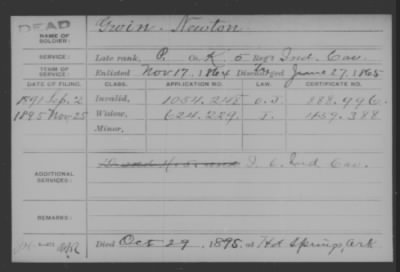 DEAD
NAME OF SOLDIER: Gwin, Newton
SERVICE: Late rank, P. Co. K, 5 Reg't Ind. Cav.
TERM OF SERVICE: Enlisted Nov 17, 1864 Discharged June 27, 1865
DATE OF FILING. CLASS. APPLICATION NO. LAW. CERTIFICATE NO.
1891 Sep. 2 Invalid, 1054.245 888.996.
1895 Nov. 25 Widow, 624.229 439.388
Minor,
ADDITIONAL SERVICES: Ind Cav.
REMARKS:
Died Oct 29, 1895, at Hot Springs, Ark.